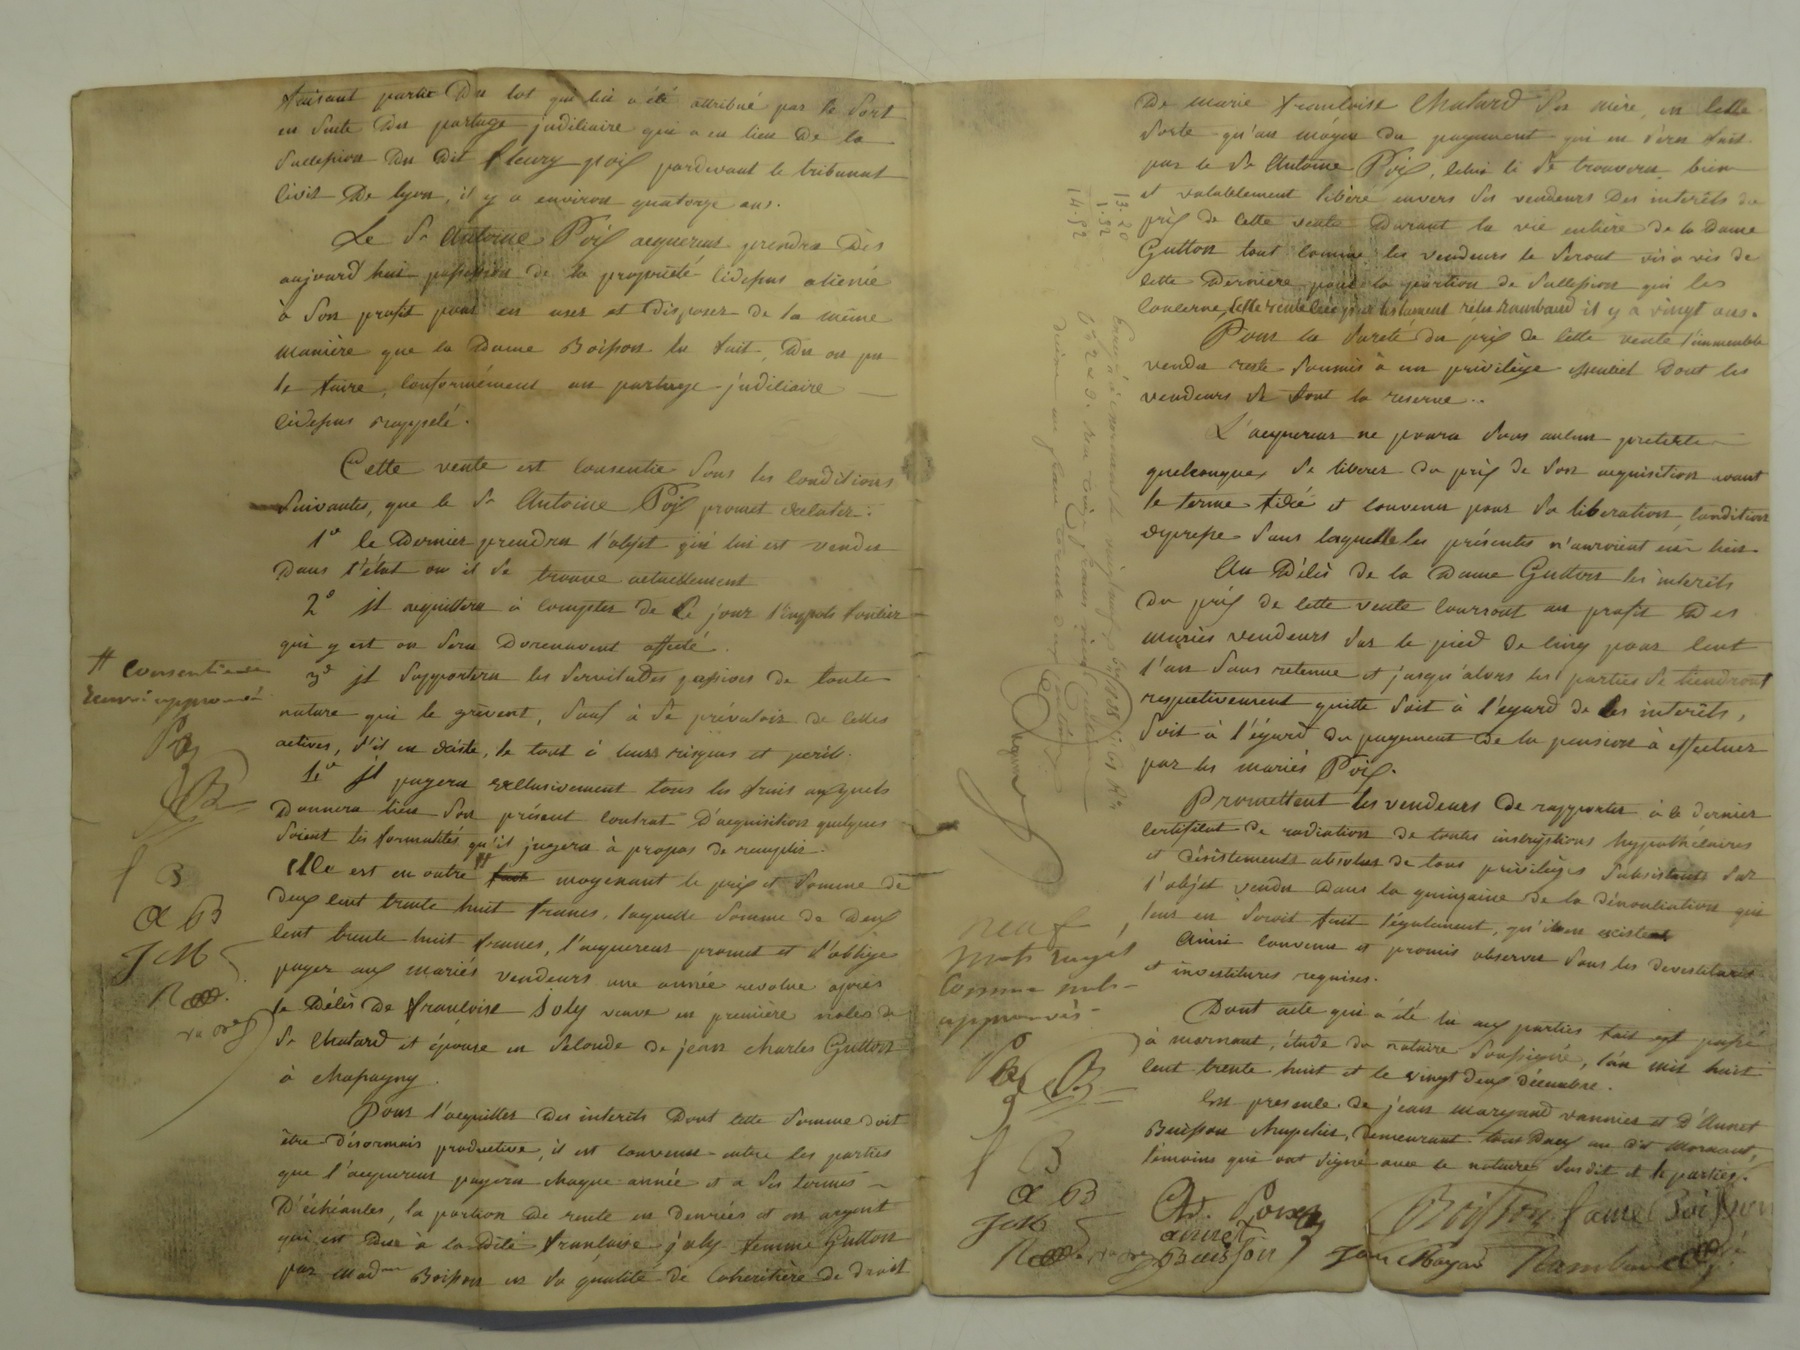 faisant partie Du lot qui lui a été attribué par le Sort
en Suite Du partage judiciaire qui a eu lieu De la
Succession Du dit fleury poix pardevant le tribunal
Civil De lyon, il y a environ quatorze ans.
Le Sr Antoine Poix acquereur prendra Dès
aujourd'hui possession de la propriété cidessus alienée
à Son profit pour en user et Disposer de la même
manière que la Dame Boisson la fait, Du ou pu
le faire, conformément au partage judiciaire
cidessus rappelé.
Cette vente est consentie Sous les conditions
Suivantes, que le Sr Antoine Poix promet exécuter:
1o le Dernier prendra l'objet qui lui est vendu
Dans l'état ou il Se trouve actuellement
2o il acquittera à compter de Ce jour l'impots foncier
qui y est ou Sera Dorenavent affecté.
3o il Supportera les Servitudes passives de toute
nature qui le grèvent, Sauf à Se prévaloir de celles
actives, S'il en existe, le tout à leurs risques et peril.
il payera exclusivement tous les frais auxquels
Donnera lieu Son présent contrat D'acquisition quelques
Soient les formalités qu'il jugera à propos de remplir.
Elle est en outre # faite moyenant le prix et Somme de
Deux cent trente huit francs, laquelle Somme de Deux
cent trente huit francs, l'acquereur promet et S'oblige
payer aux mariés vendeurs une année revolue après
le Décès De francoise Joly veuve en première noces de
Sr Chatard et épouse en Seconde de jean charles Gutton
à Chassagny.
Pour l'acquitter Des interêts Dont cette Somme doit
être Désormais productive, il est convenu entre les parties
que l'acquereur payera chaque année et a Ses termes
D'échéantes, la portion De rente en denrées et en argent
qui est Due à la dite francoise joly femme Gutton
par Madme Boisson en Sa qualité de Coheritière de droit
# Consentie
renvoi approuvé
B
a B
J M
De marie francoise Chatard Sa mère, en cette
Sorte qu'au moyen du payement qui en Sera fait
par le Sr Antoine Poix, celui ci Se trouvera bien
et valablement libéré envers Ses vendeurs Des interêts du
prix de cette vente Durant la vie entière de la Dame
Gutton tout comme les vendeurs le Seront vis à vis de
cette Dernière pour la portion de Succession qui les
concerne, cette rente créée par testament reçu Rambaud il y a vingt ans.
Pour la Sureté du prix de cette vente l'immeuble
vendu reste Soumis à un privilège Dont les
vendeurs Se font la reserve.
L'acquereur ne pourra Sous aucun pretexte
quelconque, Se liberer du prix de Son acquisition avant
le terme fixé et convenu pour Sa liberation, condition
expresse Sans laquelle les présentes n'auroient eu lieu.
Au Décès de la Dame Gutton les interêts
du prix de cette vente courront au profit Des
mariés vendeurs Sur le pied de cinq pour cent
l'an Sans retenue et jusqu'alors les parties Se tiendront
respectivement quitte Soit à l'égard de Ces interêts,
Soit à l'égard du payement de la pension à effectuer
par les mariés Poix.
Promettent les vendeurs De rapporter à ce dernier
certificat de radiation de toutes inscriptions hypothécaires
et désistements absolus de tous privilèges Subsistants Sur
l'objet vendu Dans la quinzaine de la dénonciation qui
leur en Seroit fait légalement, qu'il en existent
Ainsi convenu et promis observer Sous les devestitures
et investitures requises.
Dont acte qui a été lu aux parties fait et passé
à mornant, étude du notaire Soussigné, l'an mil huit
cent trente huit et le vingt deux décembre.
En presence de jean vannier et D'Annet
Buisson chapelier, Demeurant tous Deux au dit Mornant,
témoins qui ont Signé avec le notaire Susdit et le parties.
13.20
1.32
14.52
neuf
mots rayés
Comme nuls
approuvés
B
a B
annet
Buisson
Boisson fame Boisson